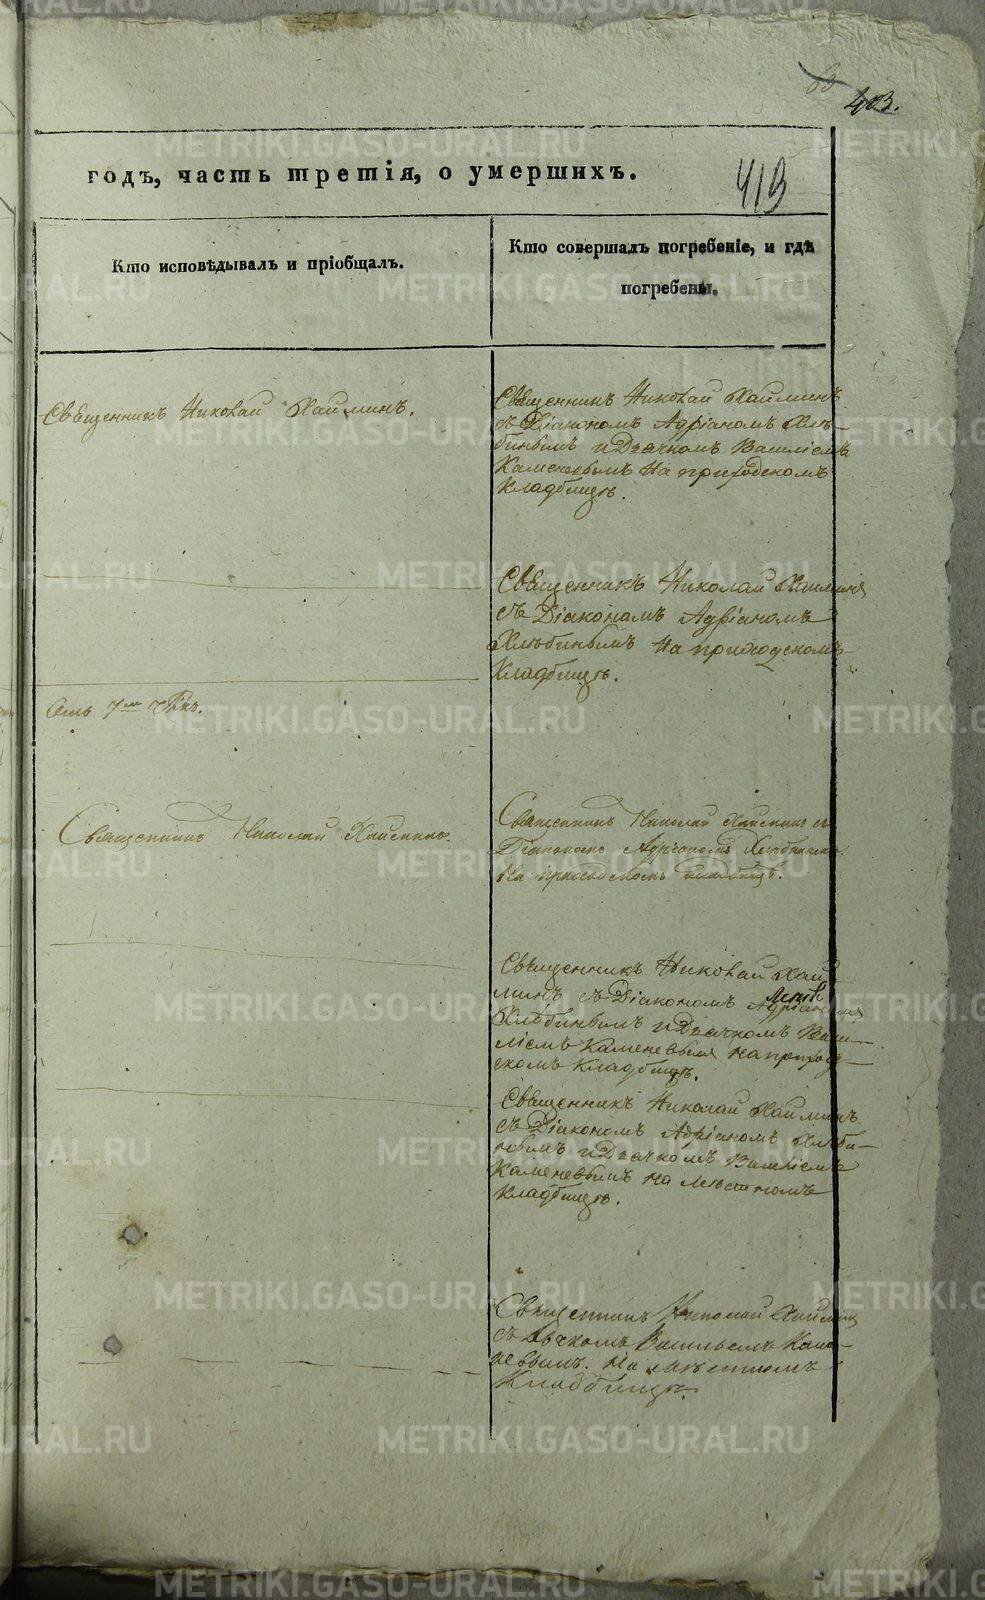 403.
419
годъ, часть третія, о умершихъ.
Кто исповѣдывалъ и пріобщалъ.
Кто совершалъ погребеніе, и гдѣ
погребены.
Священникъ Николай Хайминъ.
Священникъ Николай Хайминъ
съ Діакономъ Адріаномъ Хлѣ-
бинымъ и Дьячкомъ Василіемъ
Каменевымъ на приходскомъ
кладбищѣ.
Священникъ Николай Хайминъ
съ Діакономъ Адріаномъ
Хлѣбинымъ на приходскомъ
кладбищѣ.
Священникъ Николай Хайминъ.
Священникъ Николай Хайминъ съ
Діакономъ Адріаномъ Хлѣбинымъ
на приходскомъ кладбищѣ.
Священникъ Николай Хай-
минъ съ Діакономъ Адріаномъ
Хлѣбинымъ и Дьячкомъ Васи-
ліемъ Каменевымъ на приход-
скомъ кладбищѣ.
Священникъ Николай Хайминъ
съ Діакономъ Адріаномъ Хлѣби-
нымъ и Дьячкомъ Василіемъ
Каменевымъ на мѣстномъ
кладбищѣ.
Священникъ Николай Хайминъ
съ Дьячкомъ Васильемъ Каме-
невымъ. на мѣстномъ
кладбищѣ.
METRIKI.GASO-URAL.RU